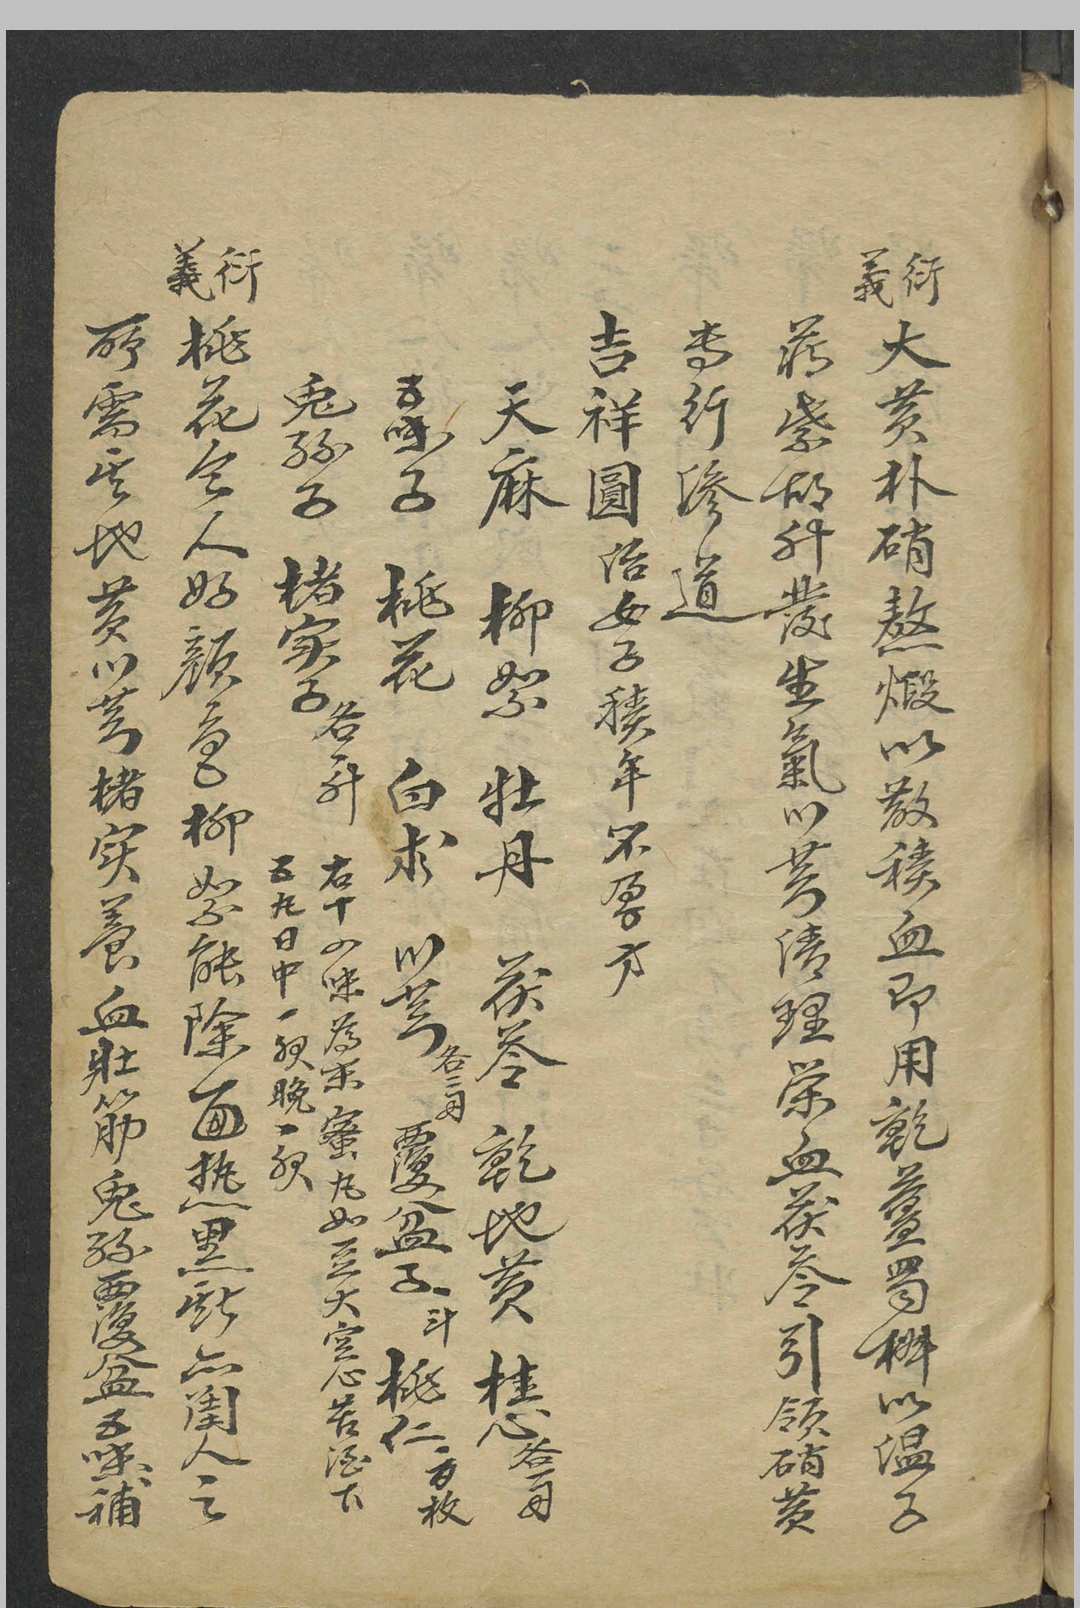 衍義
大黄朴硝熬煅以散積血即用乾薑蜀椒以温子
藏柴胡升發生氣川芎清理栄血茯苓引領硝黄
専行滲道
吉祥圓 治女子積年不孕方
天麻 柳絮 牡丹 茯苓 乾地黄 桂心各一両
五味子 桃花 白朮 川芎各二両 覆盆子一斗 桃仁一百枚
兎絲子 楮実子各一升 右十四味為末蜜丸如豆大空心苦酒下
五丸日中一服晩一服
衍義
桃花令人好顔色柳絮能除面熱黒點亦閨人之
所需至地黄川芎楮実養血壮筋兎絲覆盆五味補